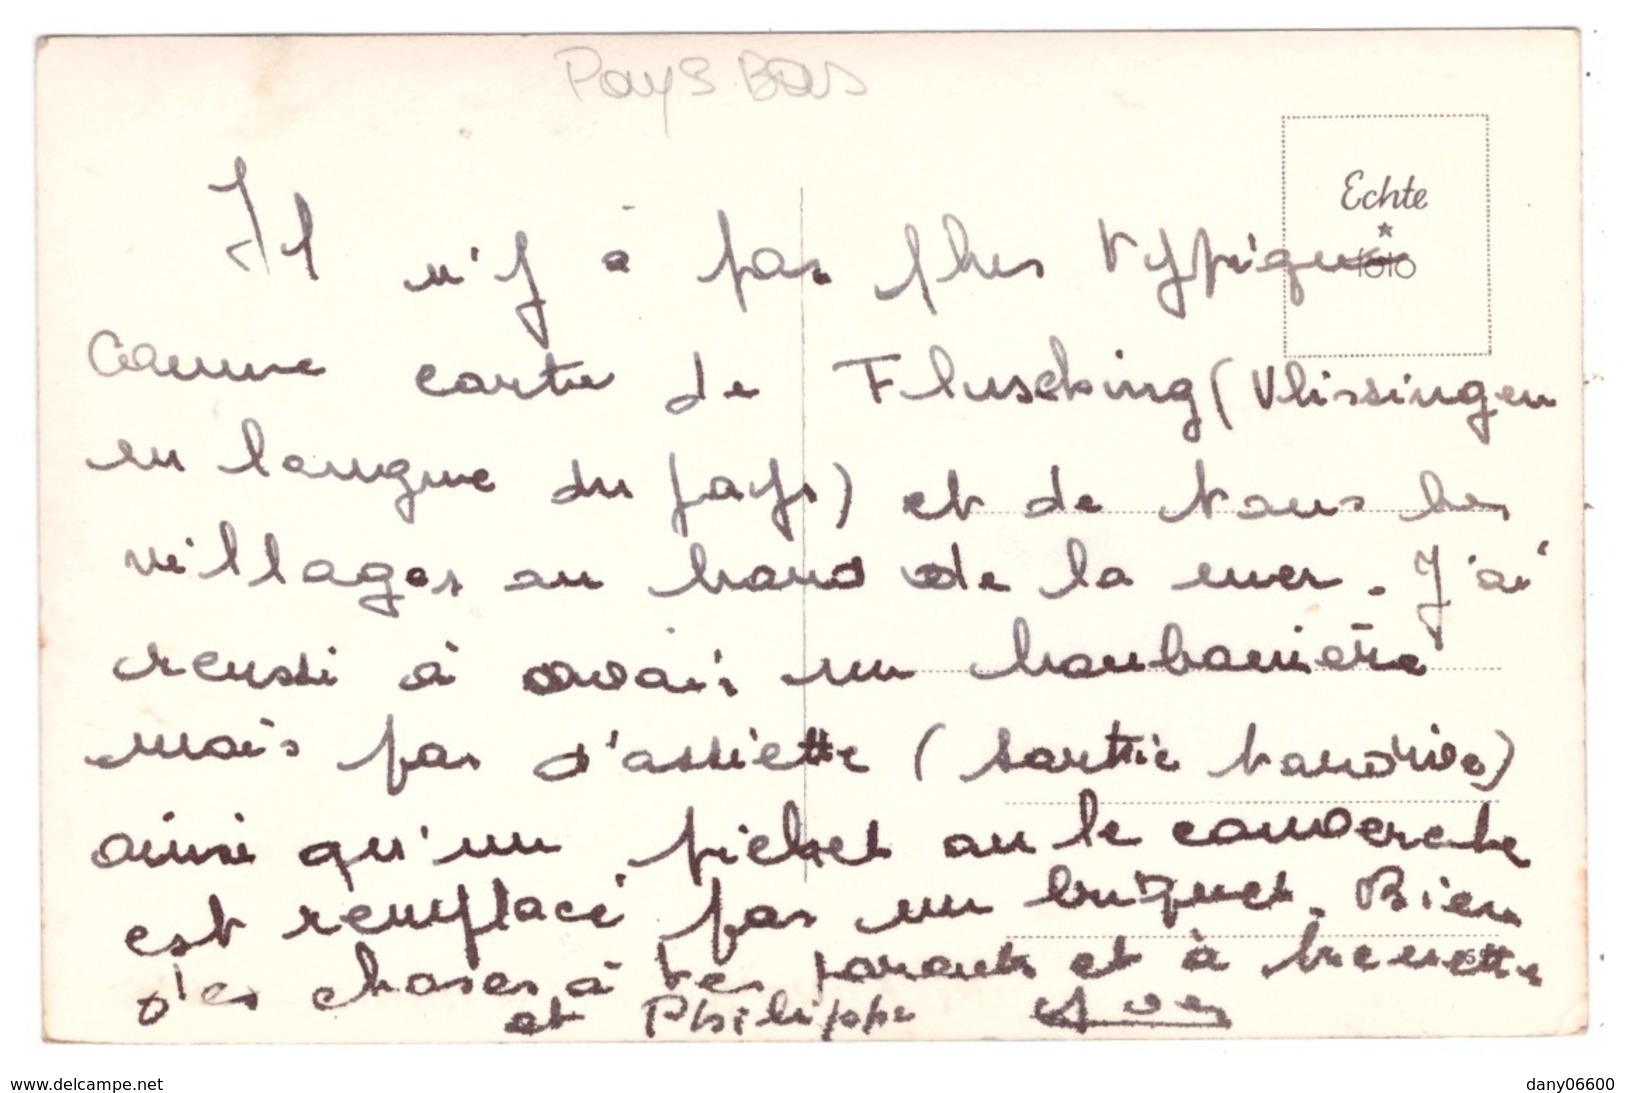 Pays Bas
Echte
foto
Il n'y à pas plus typique
comme carte de Flusching (Vlissingen
en langue du pays) et de tous les
villages au bord de la mer. J'ai
reussi à avoir un bonbonnière
mais pas d'assiette (sortie tardive)
ainsi qu'un pichet ou le couvercle
est remplacé par un briquet. Bien
des choses à tes parents et à
et Philippe
www.delcampe.net
dany06600